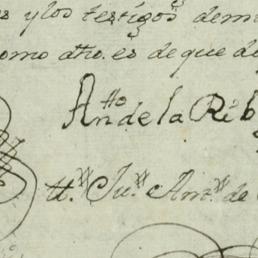 s ylos testigos demi
omo dho. es de que do
Antto de la Rib
tt.º Ju.º Ant.º de